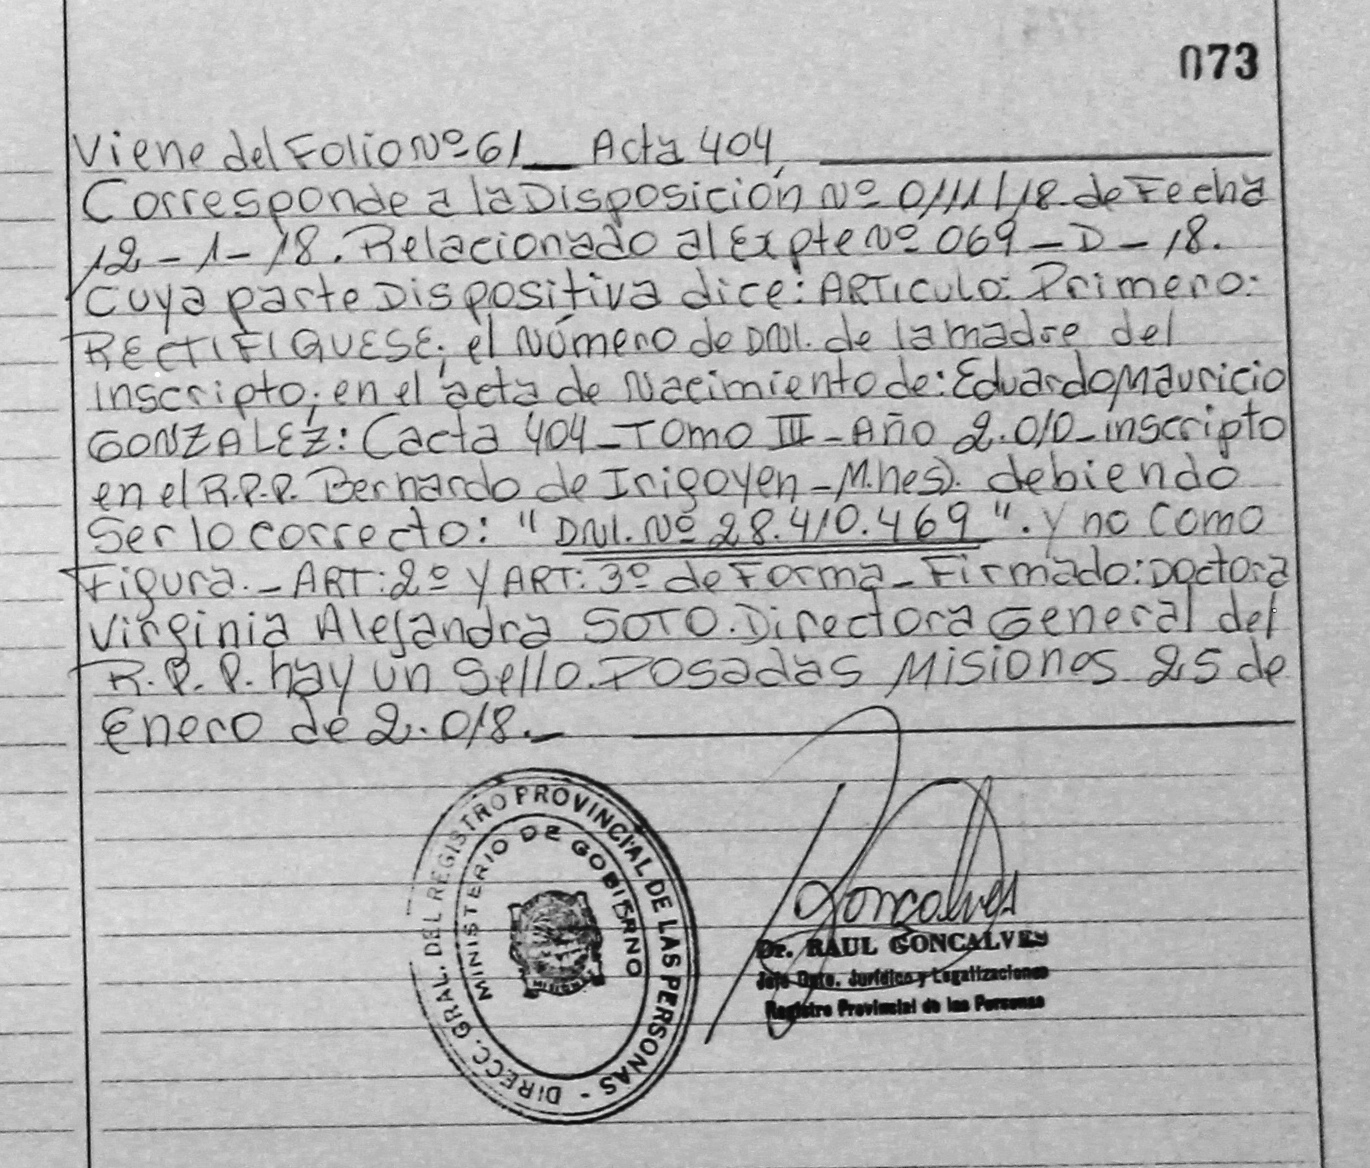 073
Viene del Folio Nº 61 _ Acta 404,
Corresponde a la Disposición Nº 0111/18 de Fecha
12-1-18. Relacionado al Expte Nº 069-D-18.
Cuya parte Dispositiva dice: ARTICULO: Primero:
RECTIFIQUESE; el Número de DNI. de la madre del
inscripto; en el acta de Nacimiento de: Eduardo Mauricio
GONZALEZ: (acta 404-Tomo III-Año 2.010-inscripto
en el R.P.P. Bernardo de Irigoyen-M.nes). debiendo
Ser lo correcto: "DNI. Nº 28.410.469". y no como
Figura.- ART: 2º y ART: 3º de Forma- Firmado: Doctora
Virginia Alejandra SOTO. Directora General del
R.P.P. hay un Sello. Posadas Misiones 25 de
Enero de 2.018.-
DIRECC. GRAL. DEL REGISTRO PROVINCIAL DE LAS PERSONAS -
MINISTERIO DE GOBIERNO
Goncalves
Dr. RAUL GONCALVES
Jefe Dpto. Jurídico y Legalizaciones
Registro Provincial de las Personas